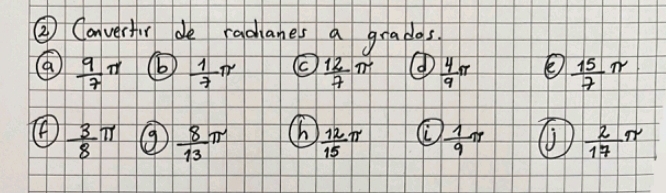 ② Convertir de radianes a grados.
ⓐ 9/7 π ⓑ 1/7 π ⓒ 12/7 π ⓓ 4/9 π ⓔ 15/7 π
ⓕ 3/8 π ⓖ 8/13 π ⓗ 12/15 π ⓘ 1/9 π ⓙ 2/17 π